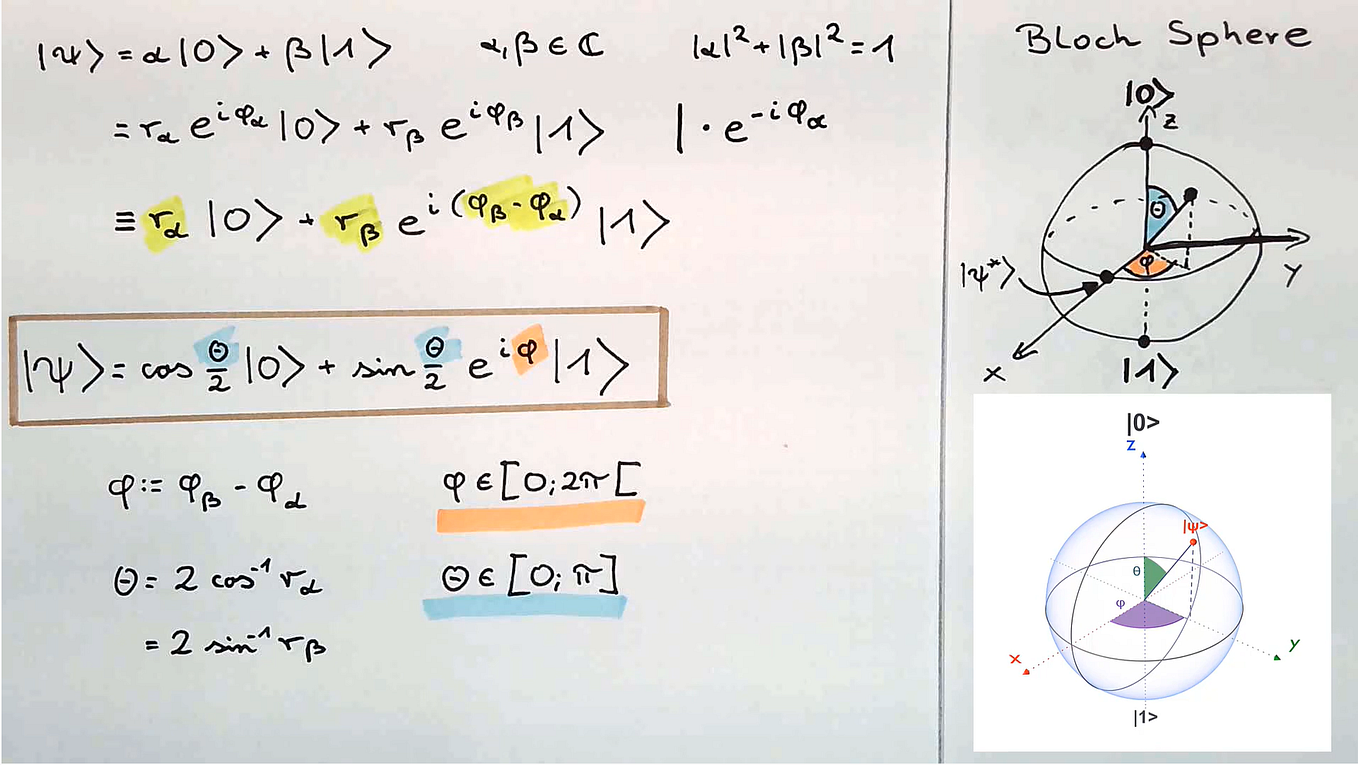 |ψ⟩ = α|0⟩ + β|1⟩   α,β ∈ ℂ   |α|² + |β|² = 1
= r_α e^{iφ_α} |0⟩ + r_β e^{iφ_β} |1⟩   | · e^{-iφ_α}
≡ r_α |0⟩ + r_β e^{i(φ_β - φ_α)} |1⟩
|ψ⟩ = cos θ/2 |0⟩ + sin θ/2 e^{iφ} |1⟩
φ := φ_β - φ_α   φ ∈ [0; 2π[
θ = 2 cos⁻¹ r_α   θ ∈ [0; π]
= 2 sin⁻¹ r_β
Bloch Sphere
|0⟩
z
θ
φ
|ψ*⟩
y
x
|1⟩
|0>
z
|ψ>
θ
φ
y
x
|1>